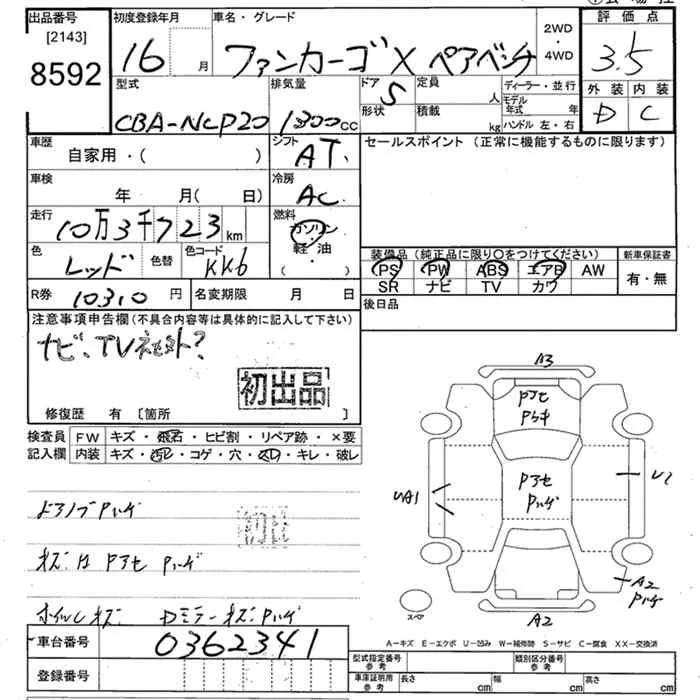 出品番号 初度登録年月 車名・グレード 2WD・4WD 評価点
[2143]
8592 16 月 ファンカーゴ X ペアベンチ 3.5
型式 排気量 ドア 5 定員 人 ディーラー・並行 外装 内装
CBA-NCP20 1300cc 形状 積載 kg モデル年式 年 D C
ハンドル 左・右
車歴 自家用・( ) シフト AT セールスポイント (正常に機能するものに限ります)
車検 年 月(日) 冷房 AC
走行 10万3千723km 燃料 ガソリン・軽油 ( )
色 レッド 色替 色コード KK6
装備品 (純正品に限り○をつけてください) 新車保証書
PS PW ABS エアB AW 有・無
SR ナビ TV カワ
R券 10310 円 名変期限 月 日 後日品
注意事項申告欄(不具合内容等は具体的に記入して下さい)
ナビ、TV社外?
初出品
修復歴 有 [箇所 ]
検査員 FW キズ・飛石・ヒビ割・リペア跡・×要
記入欄 内装 キズ・汚レ・コゲ・穴・スレ・キレ・破レ
ドアノブPハゲ
Pアセ Pハゲ
ホイルキズ Dミラーキズ Pハゲ
車台番号 0362341
登録番号
A3
Pアセ
Pアセ
Pハゲ
UA1
U2
A2
Pハゲ
スペア
A2
A-キズ E-エクボ U-凹み W-補修跡 S-サビ C-腐食 XX-交換済
型式指定番号 参考 類別区分番号 参考
車庫証明用 参考 長さ cm 幅 cm 高さ cm